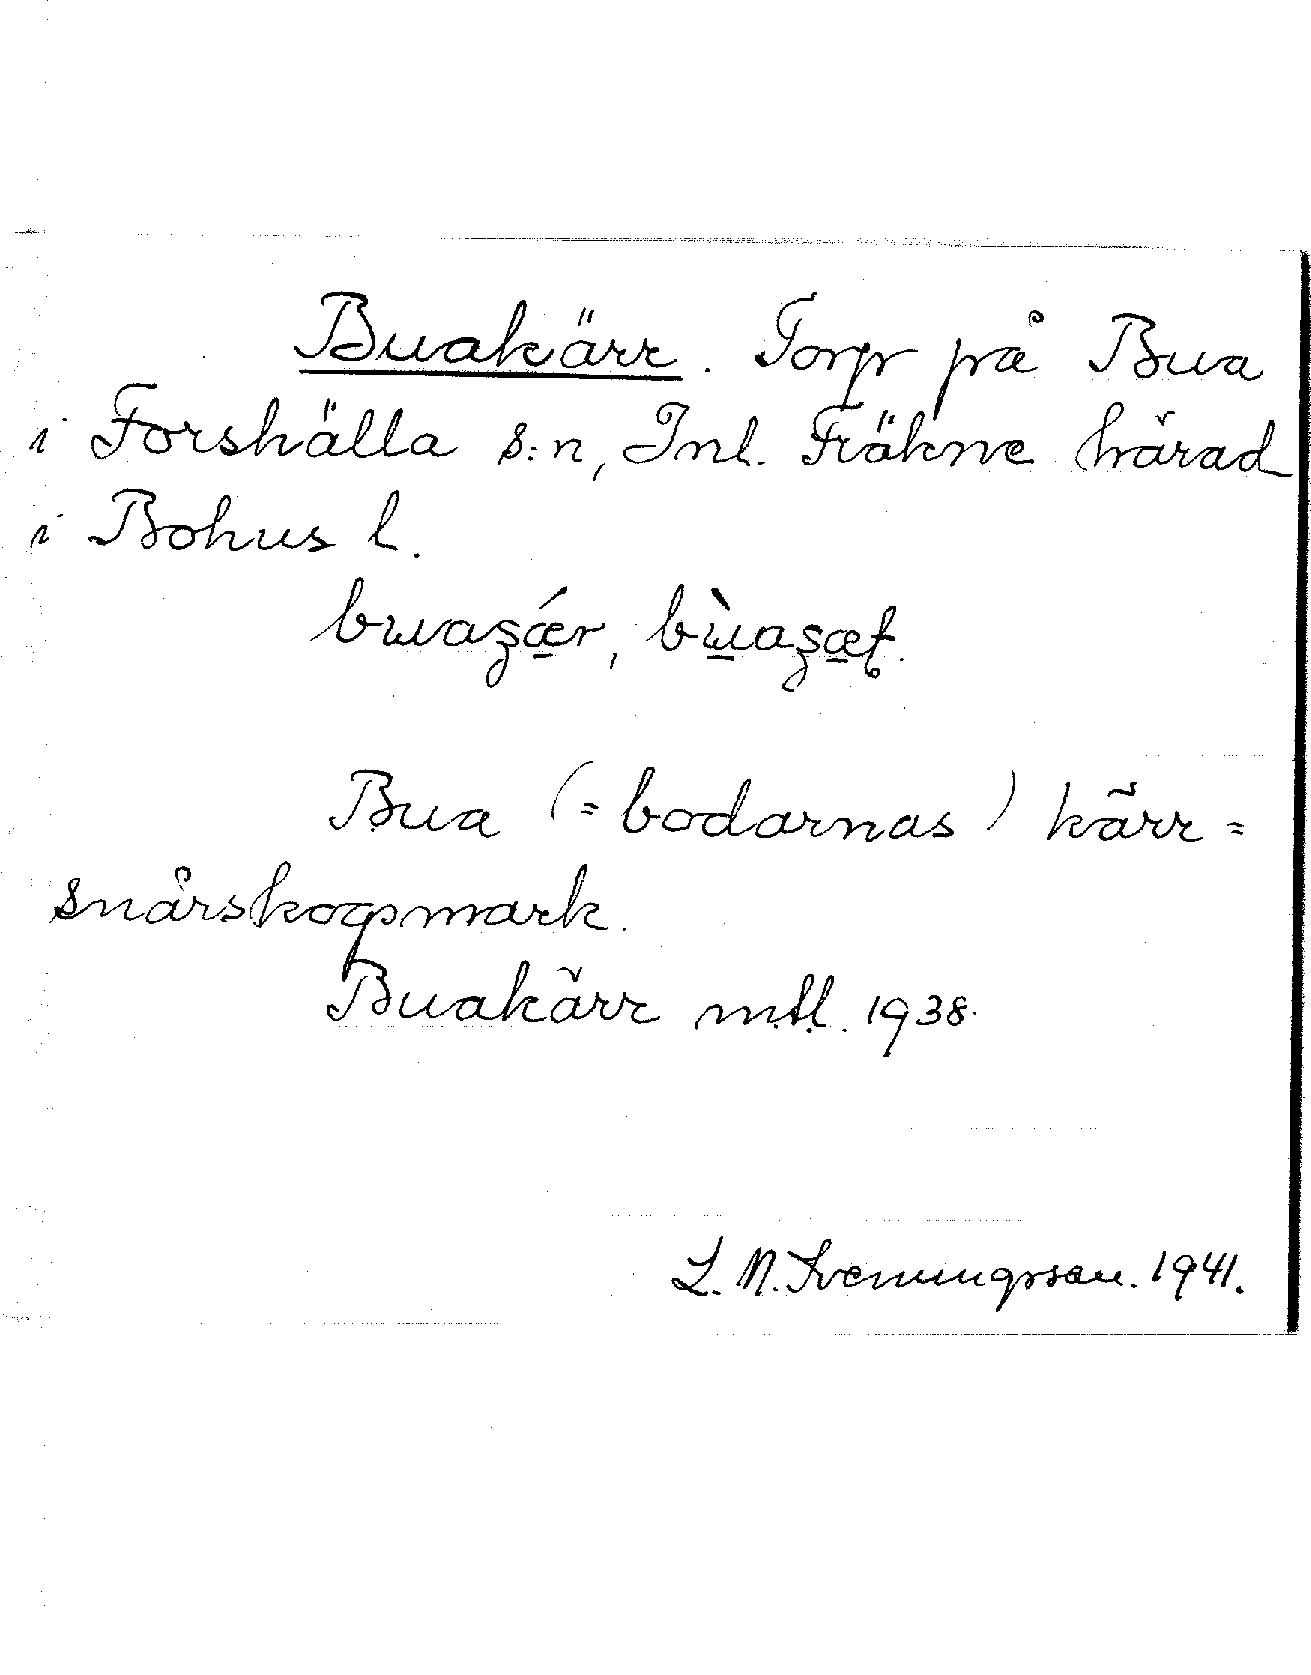 Buakärr. Torp på Bua
i Forshälla s:n, Inl. Fräkne härad
i Bohus l.
buaʂǽr, bùaʂæt.
Bua (= bodarnas) kärr =
snårskogsmark.
Buakärr mtl. 1938.
L. N. Sveningsson. 1941.